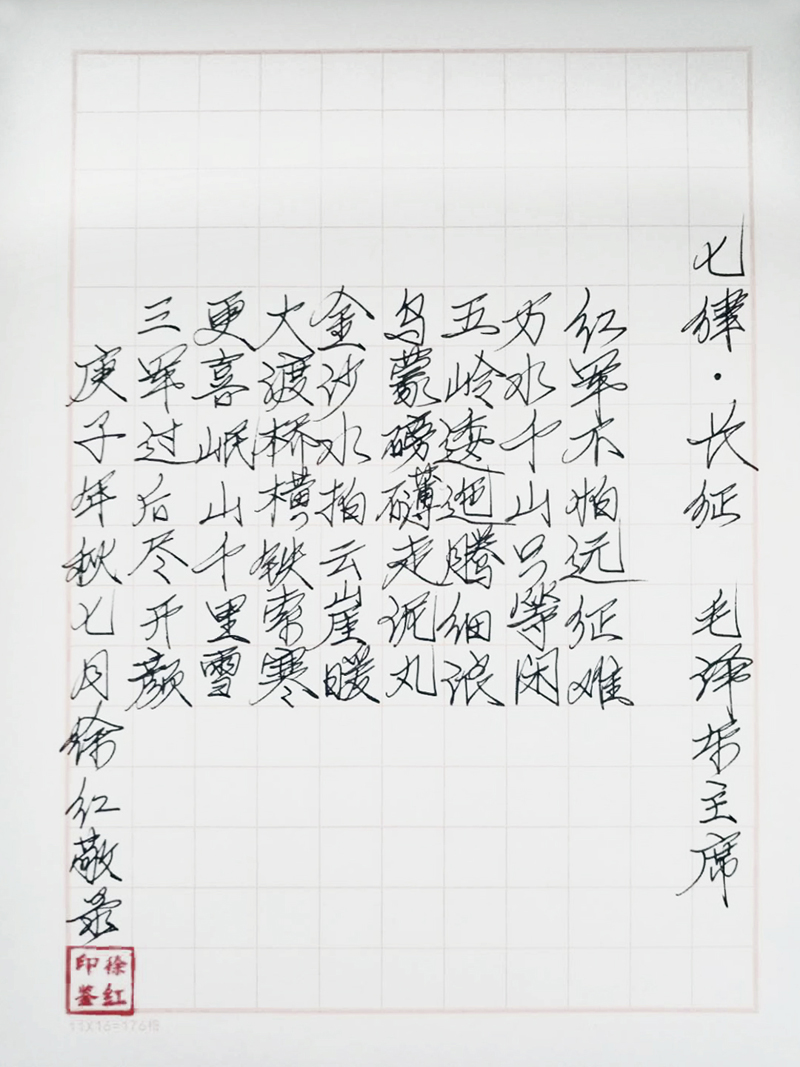 七律·长征 毛泽东主席
红军不怕远征难
万水千山只等闲
五岭逶迤腾细浪
乌蒙磅礴走泥丸
金沙水拍云崖暖
大渡桥横铁索寒
更喜岷山千里雪
三军过后尽开颜
庚子年秋七月徐红敬录
徐红印鉴
11X16=176格